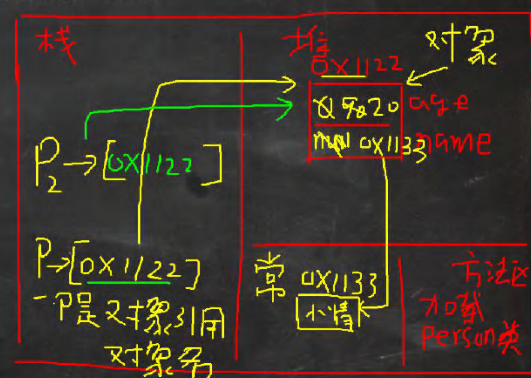 栈
P2→[0X1122]
P→[0X1122]
一P是对象引用
对象名
堆
0X1122
对象
20 age
0X1133 name
常
0X1133
小情
方法区
加载
Person类